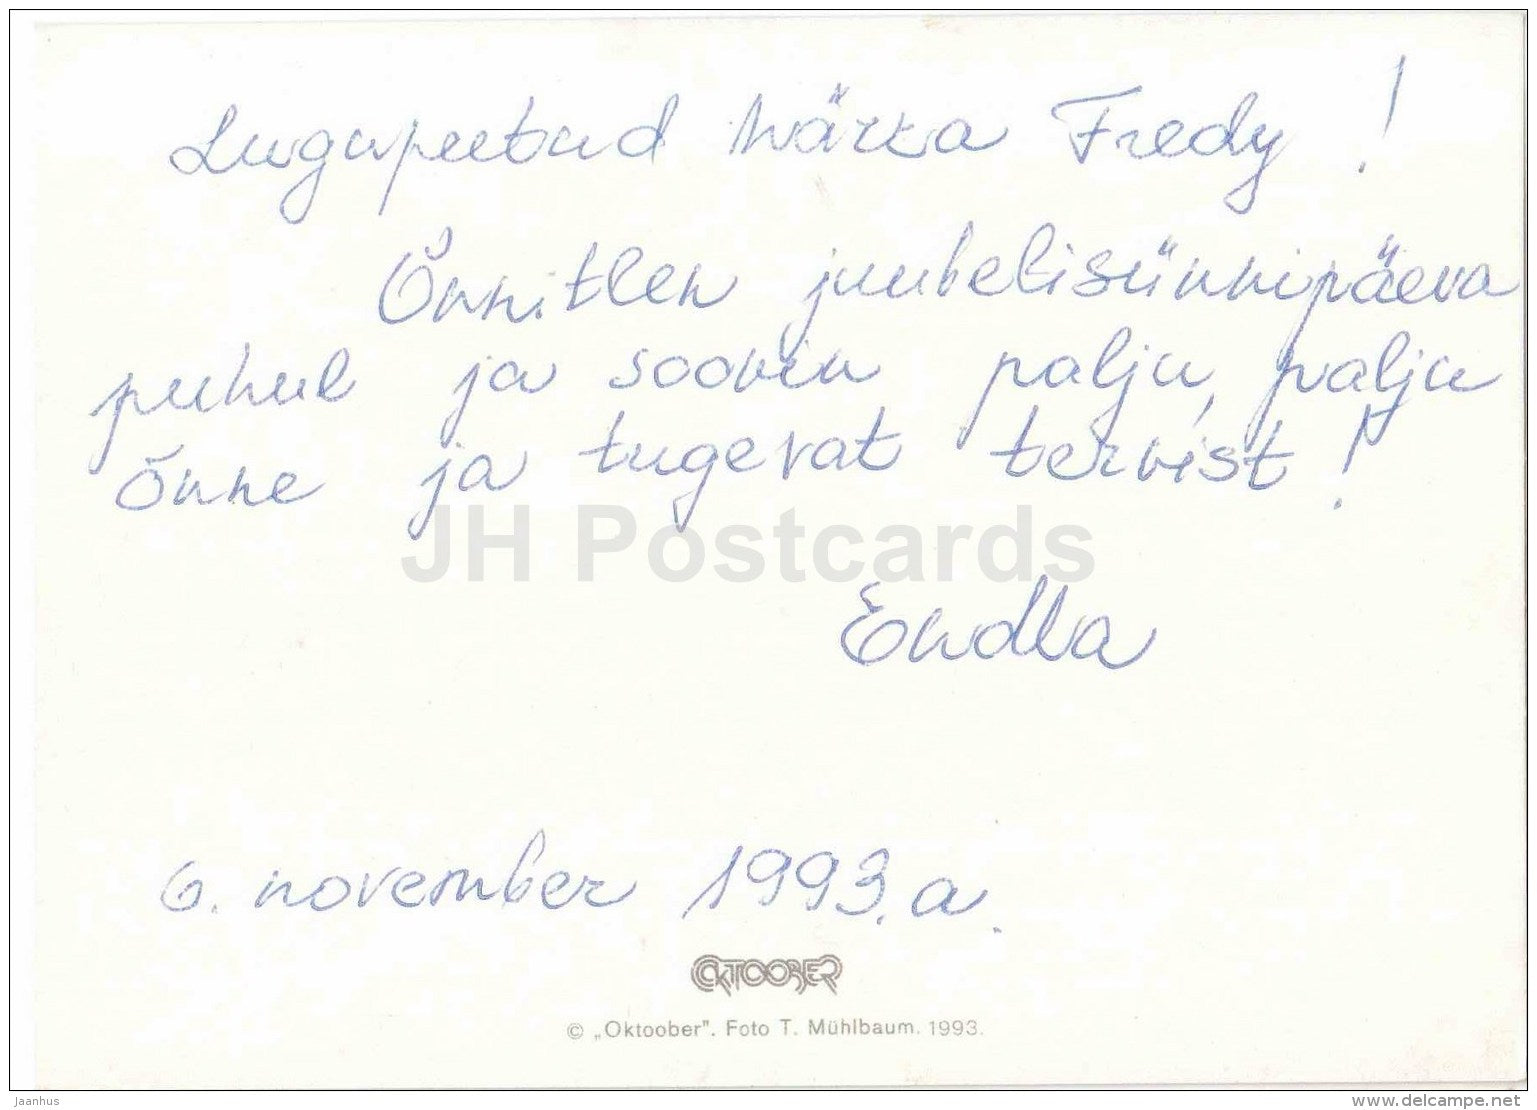 Lugupeetud härra Fredy !
Õnnitlen juubelisünnipäeva
puhul ja soovin palju, palju
õnne ja tugevat tervist !
JH Postcards
Endla
6. november 1993.a.
OKTOOBER
© „Oktoober". Foto T. Mühlbaum. 1993.
Jaanhus
www.delcampe.net